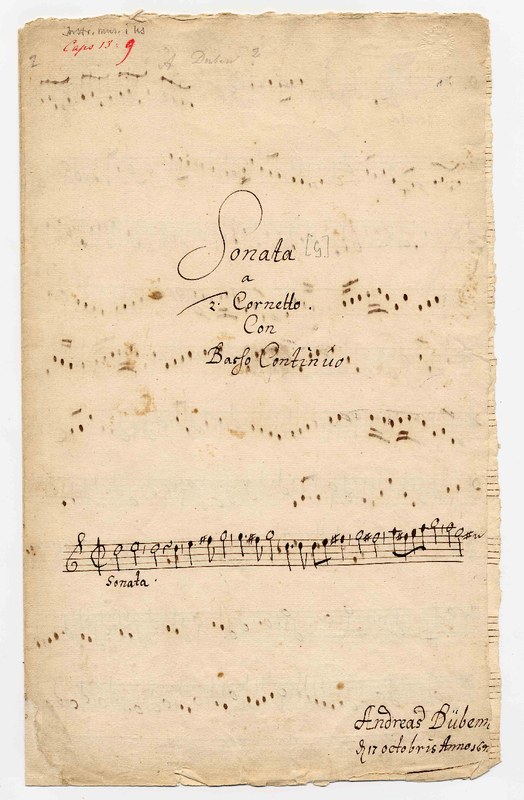 Instr. mus. i hs
Caps 13: 9
2
A Duben ?
Sonata [G]
a
2. Cornetto.
Con
Basso Continuo
Sonata.
Andreas Düben
17 octobris Anno